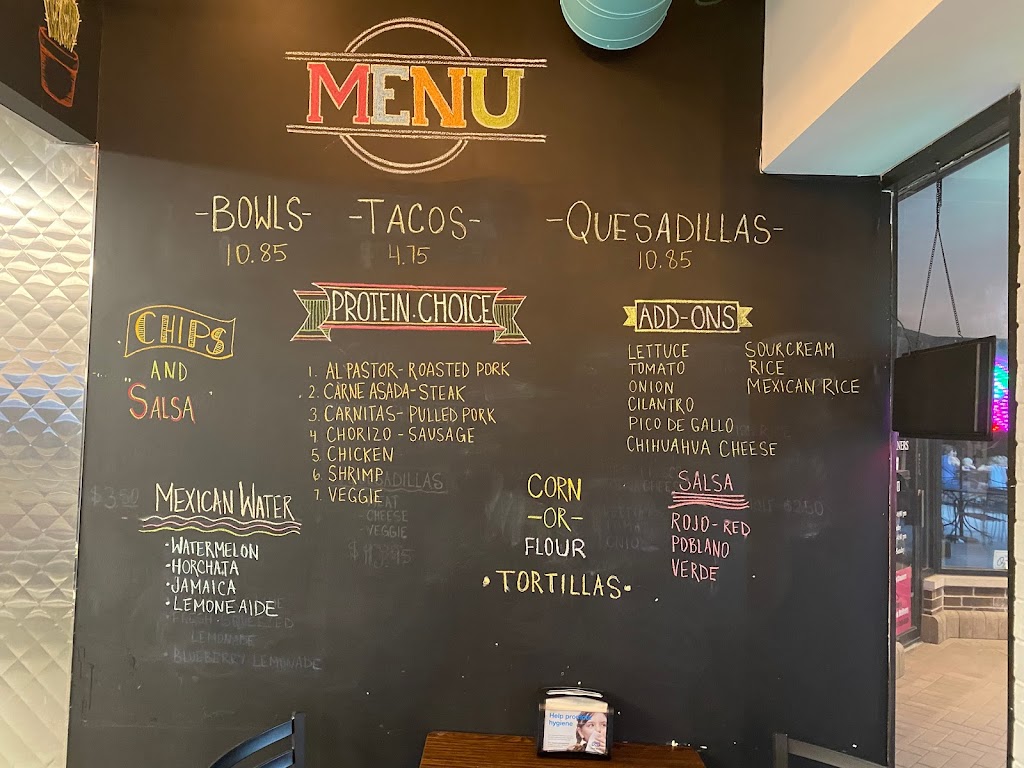 MENU
-BOWLS-
10.85
-TACOS-
4.75
-QUESADILLAS-
10.85
CHIPS
AND
SALSA
PROTEIN.CHOICE
1. AL PASTOR- ROASTED PORK
2. CARNE ASADA-STEAK
3. CARNITAS- PULLED PORK
4. CHORIZO - SAUSAGE
5. CHICKEN
6. SHRIMP
7. VEGGIE
ADD-ONS
LETTUCE
TOMATO
ONION
CILANTRO
PICO DE GALLO
CHIHUAHUA CHEESE
SOURCREAM
RICE
MEXICAN RICE
MEXICAN WATER
•WATERMELON
•HORCHATA
•JAMAICA
•LEMONEAIDE
LEMONADE
• BLUEBERRY LEMONADE
$3.50
ADILLAS
MEAT
-CHEESE
-VEGGIE
CORN
-OR-
FLOUR
•TORTILLAS•
SALSA
ROJO-RED
POBLANO
VERDE
Help
hygiene